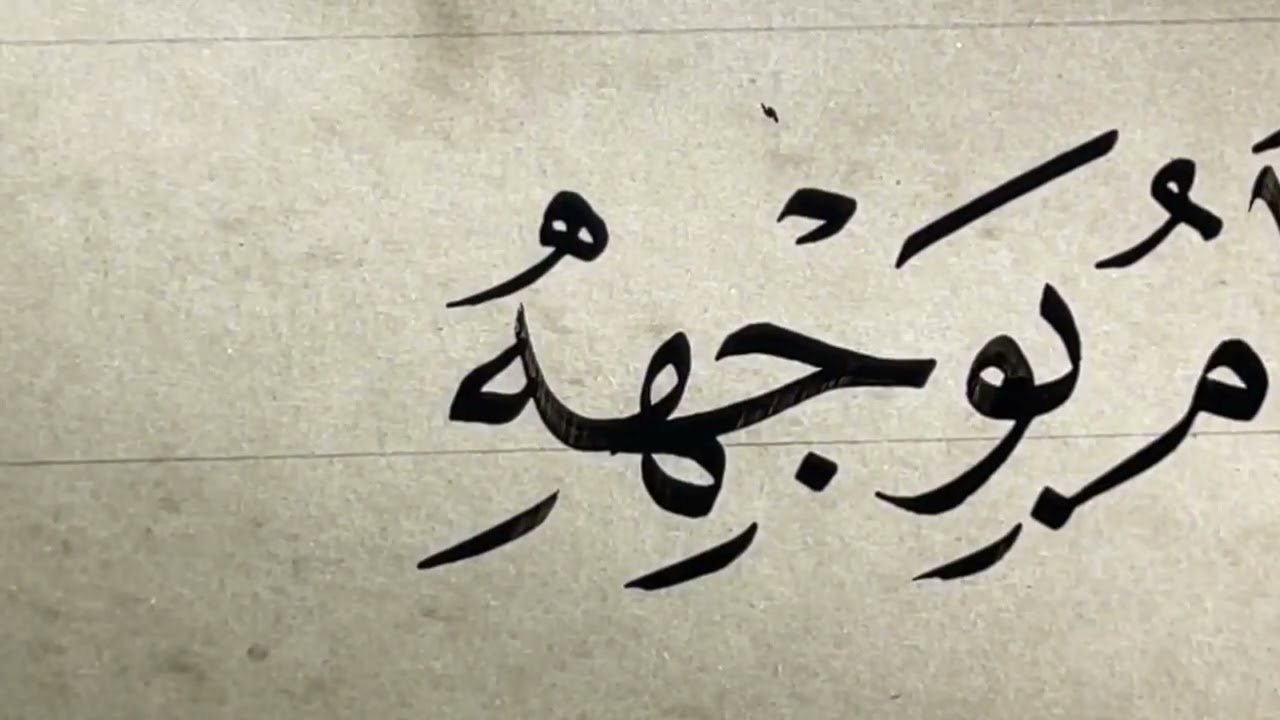 مرُ بِوَجْهِهِ